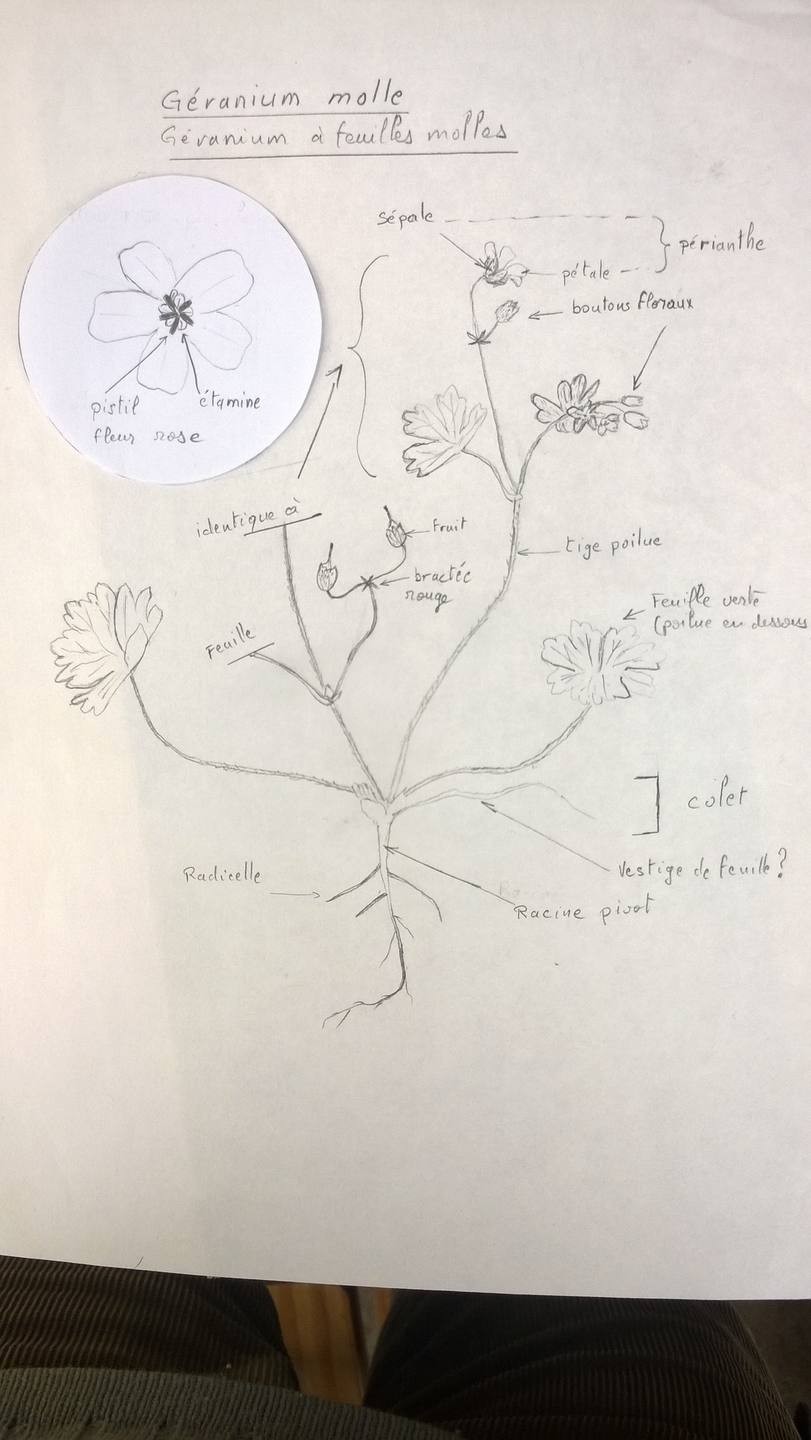 Géranium molle
Géranium à feuilles molles
Sépale
périanthe
pétale
boutons floraux
pistil
étamine
fleur rose
identique à
fruit
bractée
rouge
tige poilue
Feuille
Feuille verte
(poilue en dessous
colet
Vestige de feuille?
Radicelle
Racine pivot